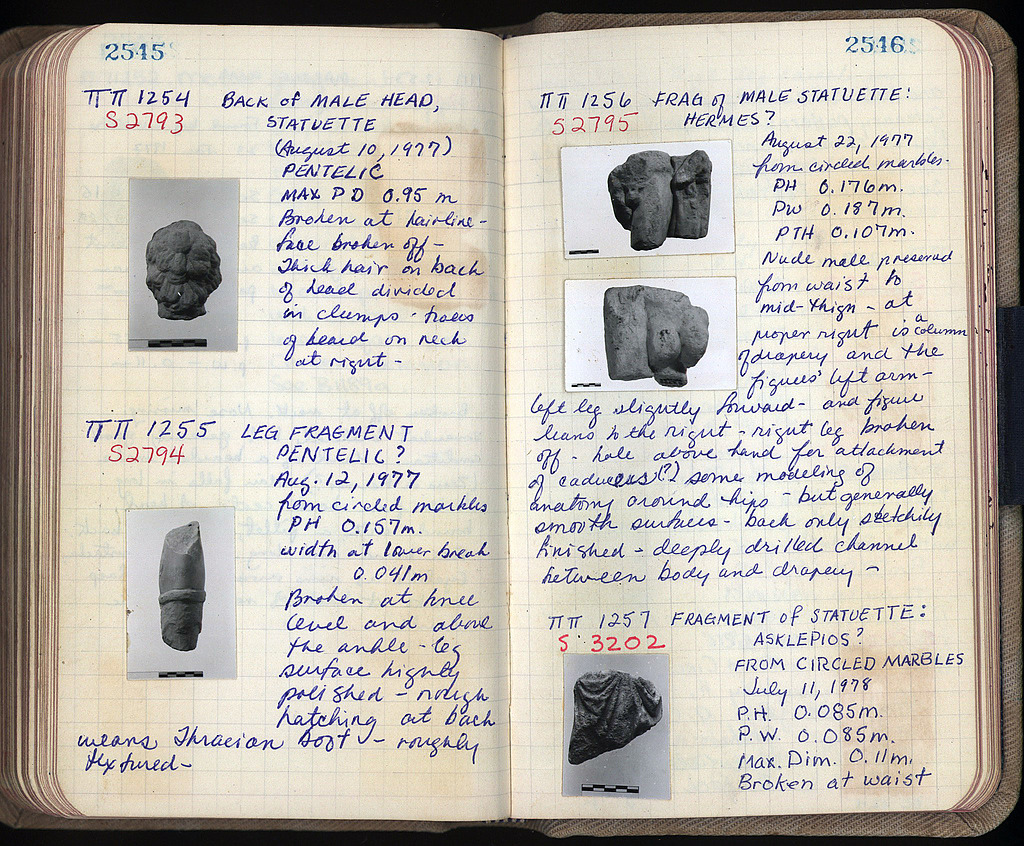 2545
ΠΠ 1254 BACK of MALE HEAD,
S 2793 STATUETTE
(August 10, 1977)
PENTELIC
MAX PD 0.95 m
Broken at hairline -
face broken off -
Thick hair on back
of head divided
in clumps - traces
of beard on neck
at right -
ΠΠ 1255 LEG FRAGMENT
S 2794 PENTELIC?
Aug. 12, 1977
from circled marbles
PH 0.157m.
width at lower break
0.041m
Broken at knee
level and above
the ankle - leg
surface highly
polished - rough
hatching at back
wears Thracian boot - roughly
textured -
2546
ΠΠ 1256 FRAG of MALE STATUETTE:
S 2795 HERMES?
August 22, 1977
from circled marbles.
PH 0.176m.
PW 0.187m.
PTH 0.107m.
Nude male preserved
from waist to
mid-thigh - at
proper right is a column
of drapery and the
figures' left arm -
left leg slightly forward - and figure
leans to the right - right leg broken
off - hole above hand for attachment
of caduceus(?) some modeling of
anatomy around hips - but generally
smooth surfaces - back only sketchily
finished - deeply drilled channel
between body and drapery -
ΠΠ 1257 FRAGMENT of STATUETTE:
S 3202 ASKLEPIOS?
FROM CIRCLED MARBLES
July 11, 1978
P.H. 0.085m.
P.W. 0.085m.
Max. Dim. 0.11m.
Broken at waist